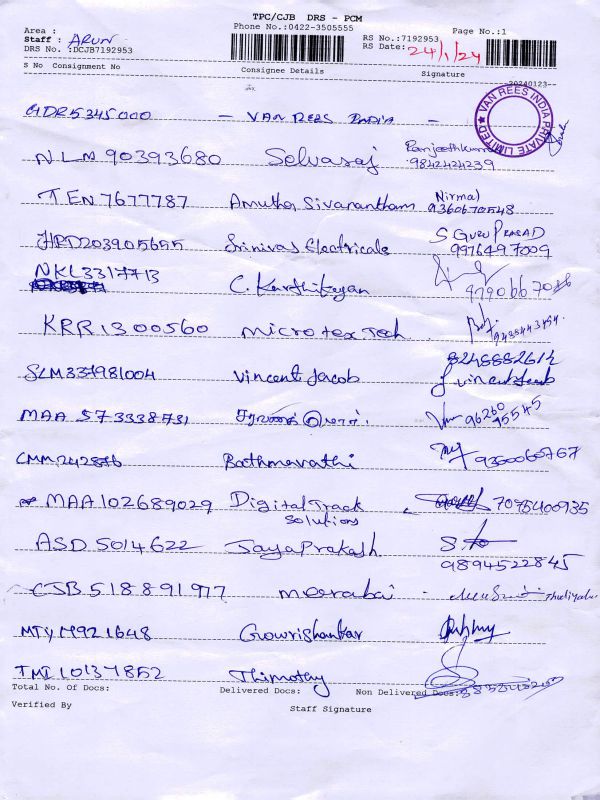 TPC/CJB DRS - PCM
Phone No.:0422-3505555
Area :
Staff : ARUN
DRS No. :DCJB7192953
RS No.:7192953
RS Date: 24/1/24
Page No.:1
S No Consignment No Consignee Details Signature
20240123-
VAN REES INDIA PRIVATE LIMITED
HDR5345000 - VAN REES INDIA -
NLM 90393680 Selvaraj 9842424239
TEN 7677787 Amutha Sivanantham Nirmal 9360670548
HPD203905655 Srinivas Electricals S GURU PRASAD 9976497009
NKL3317713 C. Karthikeyan
KRR1300560 Microtex Tech
SLM337981004 Vincent Jacob 8248882612
MAA 573338731 96260 95545
CMM242876 Bathmavathi 9360065767
MAA102689029 Digital Track Solutions 7095400935
ASD 5014622 JayaPrakash 9894522845
CJB 518891977 meerabai
MTY M921648 Gowrishankar
TMI 10137852 Thimothy
Total No. Of Docs: Delivered Docs: Non Delivered Docs:
Verified By Staff Signature